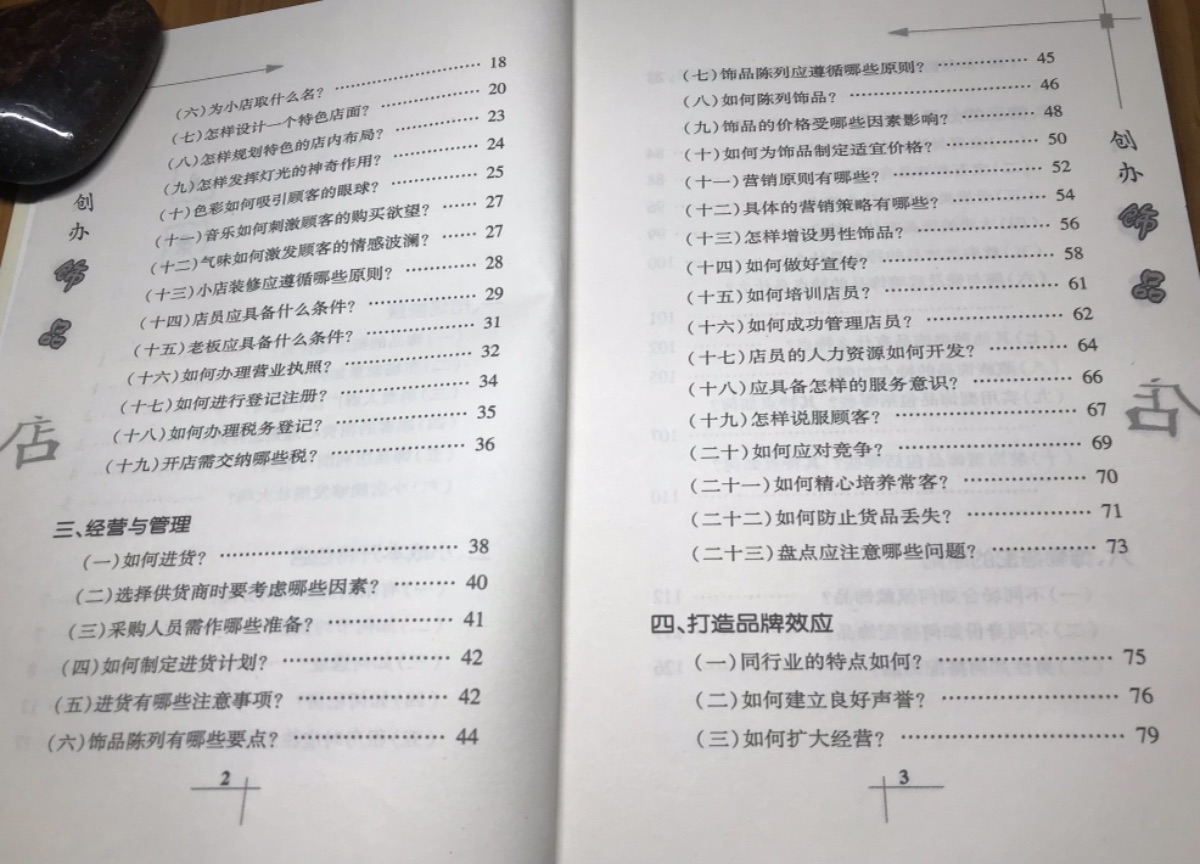 创办饰品店
(六)为小店取什么名? …… 18
(七)怎样设计一个特色店面? …… 20
(八)怎样规划特色的店内布局? …… 23
(九)怎样发挥灯光的神奇作用? …… 24
(十)色彩如何吸引顾客的眼球? …… 25
(十一)音乐如何刺激顾客的购买欲望? …… 27
(十二)气味如何激发顾客的情感波澜? …… 27
(十三)小店装修应遵循哪些原则? …… 28
(十四)店员应具备什么条件? …… 29
(十五)老板应具备什么条件? …… 31
(十六)如何办理营业执照? …… 32
(十七)如何进行登记注册? …… 34
(十八)如何办理税务登记? …… 35
(十九)开店需交纳哪些税? …… 36
三、经营与管理
(一)如何进货? …… 38
(二)选择供货商时要考虑哪些因素? …… 40
(三)采购人员需作哪些准备? …… 41
(四)如何制定进货计划? …… 42
(五)进货有哪些注意事项? …… 42
(六)饰品陈列有哪些要点? …… 44
2
(七)饰品陈列应遵循哪些原则? …… 45
(八)如何陈列饰品? …… 46
(九)饰品的价格受哪些因素影响? …… 48
(十)如何为饰品制定适宜价格? …… 50
(十一)营销原则有哪些? …… 52
(十二)具体的营销策略有哪些? …… 54
(十三)怎样增设男性饰品? …… 56
(十四)如何做好宣传? …… 58
(十五)如何培训店员? …… 61
(十六)如何成功管理店员? …… 62
(十七)店员的人力资源如何开发? …… 64
(十八)应具备怎样的服务意识? …… 66
(十九)怎样说服顾客? …… 67
(二十)如何应对竞争? …… 69
(二十一)如何精心培养常客? …… 70
(二十二)如何防止货品丢失? …… 71
(二十三)盘点应注意哪些问题? …… 73
四、打造品牌效应
(一)同行业的特点如何? …… 75
(二)如何建立良好声誉? …… 76
(三)如何扩大经营? …… 79
3
创办饰品店